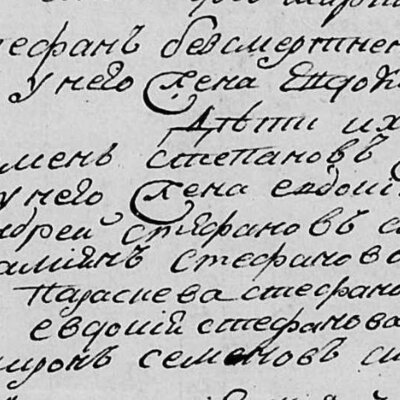 тефанъ безсмертнен
у него жена Евдок
Дѣти их
мень степановъ
у него жена евдокі
ндрей стефановъ с
амиянъ стефанов
Параскева стефано
евдокій стефанова
мронъ семеновъ сы